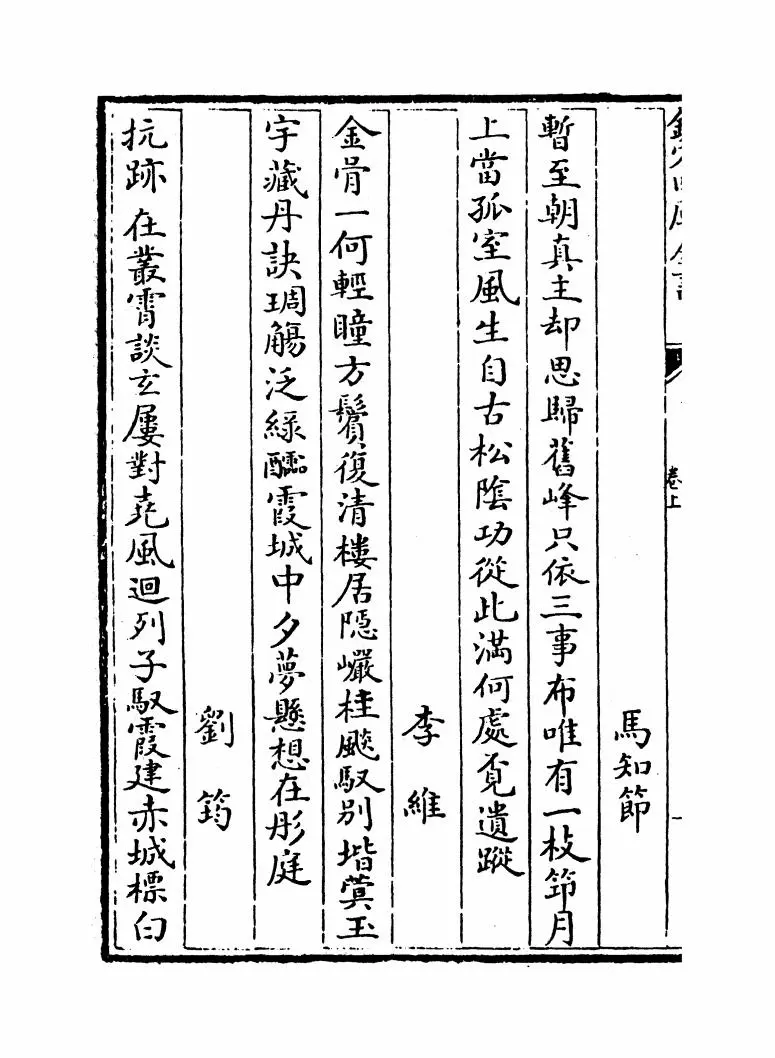 卷上
馬知節
暫至朝真主却思歸舊峰只依三事布唯有一枝笻月
上當孤室風生自古松陰功從此滿何處覓遺蹤
李維
金骨一何輕瞳方鬢復清樓居隱巗桂飈馭别堦蓂玉
宇藏丹訣琱觴泛綠醽霞城中夕夢懸想在彤庭
劉筠
抗跡在叢霄談玄屢對堯風迴列子馭霞建赤城標白